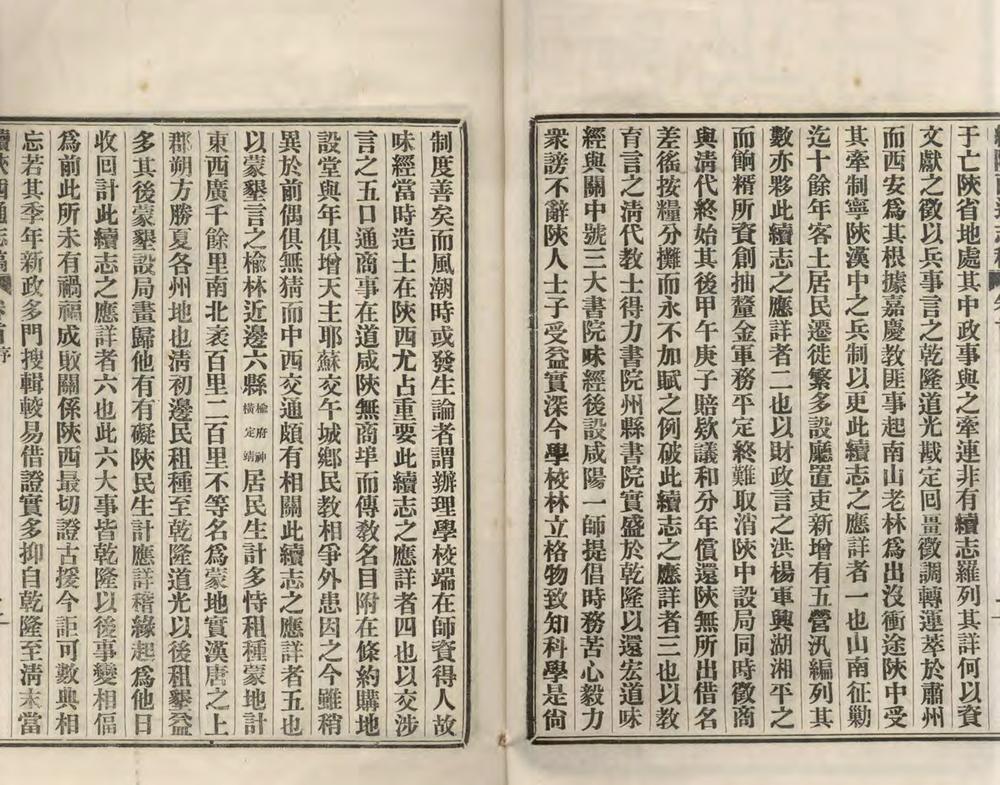 于亡陝省地處其中政事與之牽連非有續志羅列其詳何以資
文獻之徵以兵事言之乾隆道光戡定回畺徵調轉運萃於肅州
而西安爲其根據嘉慶教匪事起南山老林爲出沒衝途陝中受
其牽制寧陝漢中之兵制以更此續志之應詳者一也山南征勦
迄十餘年客土居民遷徙繁多設廳置吏新增有五營汛編列其
數亦夥此續志之應詳者二也以財政言之洪楊軍興湖湘平之
而餉糈所資創抽釐金軍務平定終難取消陝中設局同時徵商
與淸代終始其後甲午庚子賠欵議和分年償還陝無所出借名
差徭按糧分攤而永不加賦之例破此續志之應詳者三也以教
育言之淸代教士得力書院州縣書院實盛於乾隆以還宏道味
經與關中號三大書院味經後設咸陽一師提倡時務苦心毅力
衆謗不辭陝人士子受益實深今學校林立格物致知科學是尙
制度善矣而風潮時或發生論者謂辦理學校端在師資得人故
味經當時造士在陝西尤占重要此續志之應詳者四也以交涉
言之五口通商事在道咸陝無商埠而傳教名目附在條約購地
設堂與年俱增天主耶蘇交午城鄉民教相爭外患因之今雖稍
異於前偶俱無猜而中西交通頗有相關此續志之應詳者五也
以蒙墾言之楡林近邊六縣楡府神橫定靖居民生計多恃租種蒙地計
東西廣千餘里南北袤百里二百里不等名爲蒙地實漢唐之上
郡朔方勝夏各州地也淸初邊民租種至乾隆道光以後租墾益
多其後蒙墾設局畫歸他有有礙陝民生計應詳稽緣起爲他日
收回計此續志之應詳者六也此六大事皆乾隆以後事變相偪
爲前此所未有禍福成敗關係陝西最切證古援今詎可數典相
忘若其季年新政多門搜輯較易借證實多抑自乾隆至淸末當
續陝西通志稿 卷首序